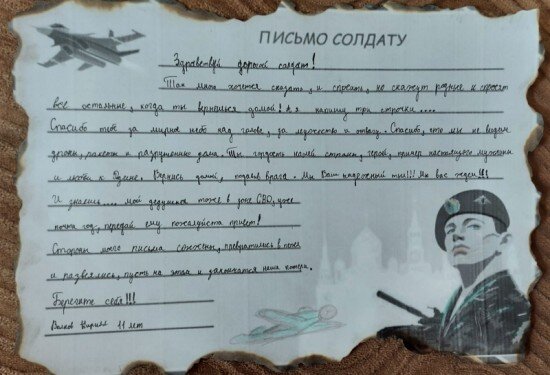 ПИСЬМО СОЛДАТУ
Здравствуй дорогой солдат!
Так много хочется сказать, и спросить, но скажут родные и спросят
все остальные, когда ты вернёшься домой! А я напишу три строчки....
Спасибо тебе за мирное небо над головой, за мужество и отвагу. Спасибо, что мы не видим
дроны, ракеты и разрушенные дома. Ты гордость нашей страны, герой, пример настоящего мужчины
и любви к Родине. Вернись домой, победив врага. Мы Ваш надёжный тыл!!! Мы вас ждём!!!
И знаешь.... мой дедушка тоже в зоне СВО, уже
почти год, передай ему пожалуйста привет!
Стороны моего письма сожжены, превратились в пепел
и развеялись, пусть на этом и закончатся наши потери.
Берегите себя!!!
Волков Кирилл 11 лет